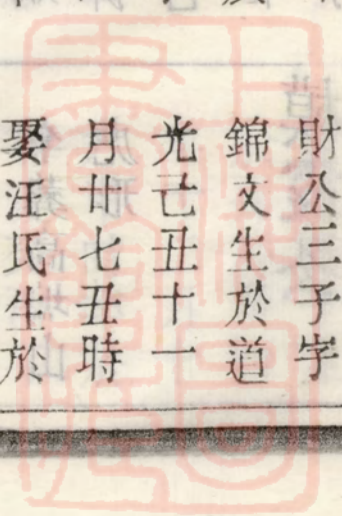 財公三子字
錦文生於道
光己丑十一
月廿七丑時
娶汪氏生於